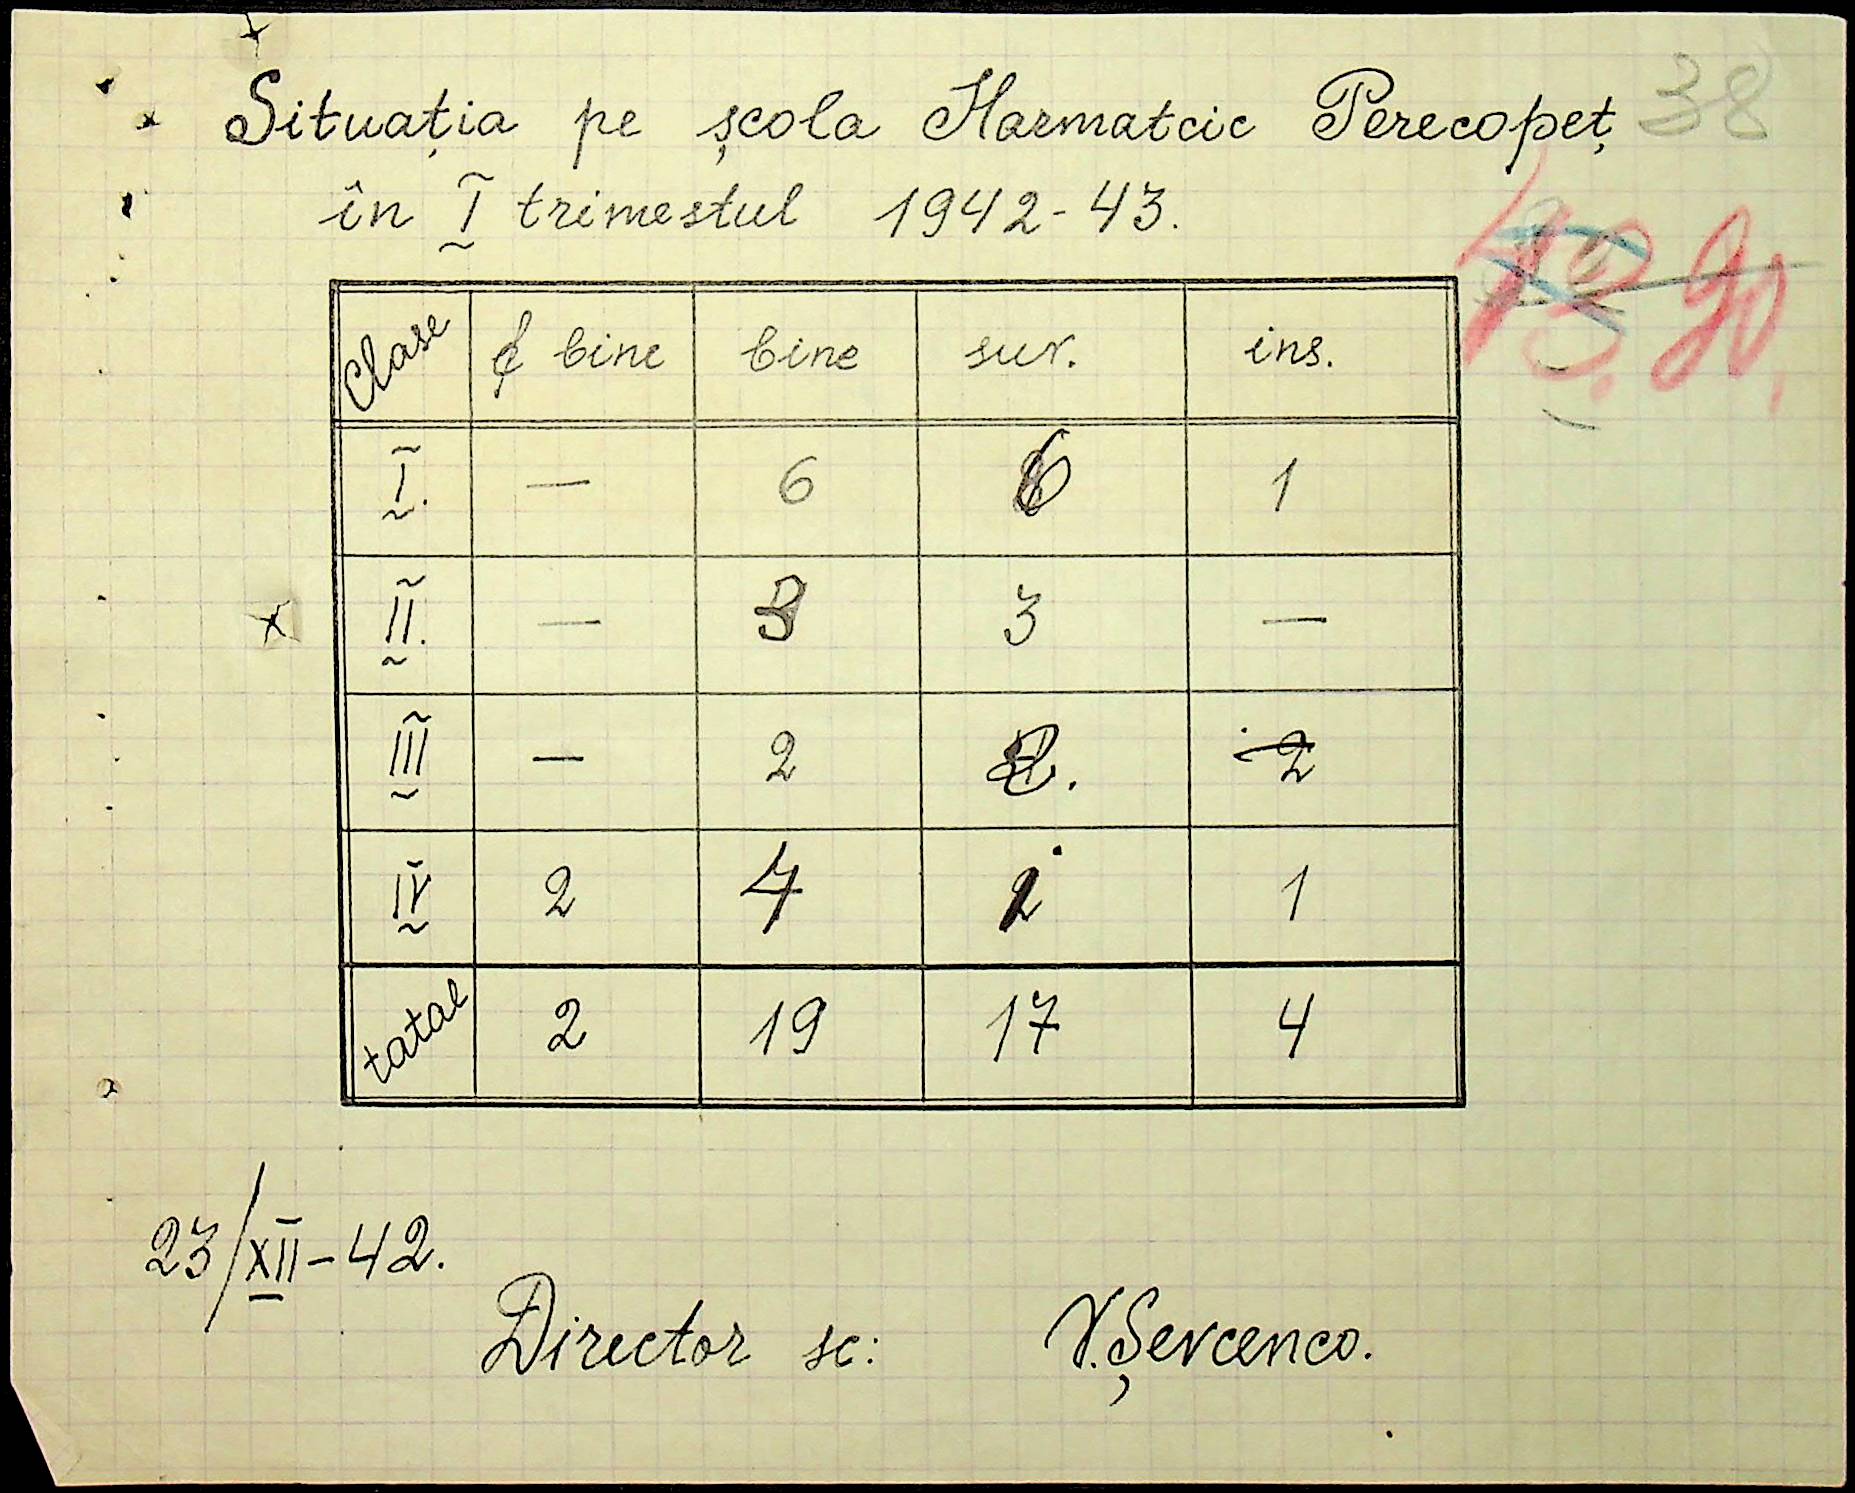 38
Situația pe școla Harmatcic Perecopeț
în I trimestul 1942-43.
90.
Clase bine bine suv. ins.
I. — 6 6 1
II. — 3 3 —
III — 2
IV 2 4 1
tatal 2 19 17 4
23/XII-42.
Director sc: V. Șevcenco.